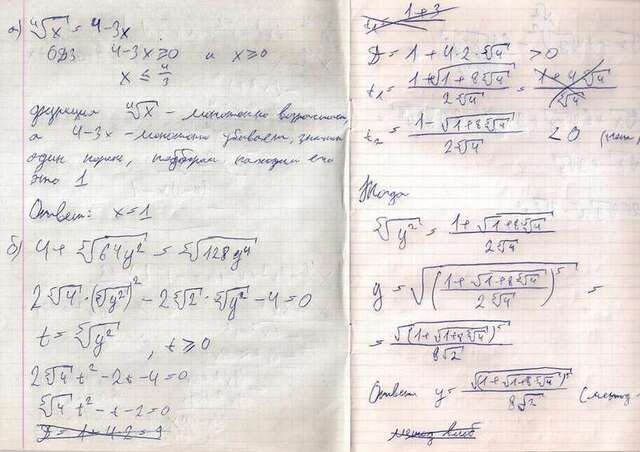 а) ⁴√x = 4-3x
ОДЗ 4-3x ≥ 0 и x ≥ 0
x ≤ 4/3
функция ⁴√x - монотонно возрастает,
а 4-3x - монотонно убывает, значит
один корень, подбором находим его
это 1
Ответ: x=1
б) 4 + ⁵√(64y²) = ⁵√(128y⁴)
2⁵√4 · (⁵√y²)² - 2⁵√2 · ⁵√y² - 4 = 0
t = ⁵√y² , t ≥ 0
2⁵√4 t² - 2t - 4 = 0
⁵√4 t² - t - 2 = 0
D = 1 + 4·2 = 9
1+3
D = 1 + 4·2·⁵√4 > 0
t₁ = (1+√(1+8⁵√4))/(2⁵√4) =
t₂ = (1-√(1+8⁵√4))/(2⁵√4) < 0
Тогда
⁵√y² = (1+√(1+8⁵√4))/(2⁵√4)
y = √((1+√(1+8⁵√4))/(2⁵√4))⁵ =
= √(1+√(1+8⁵√4))⁵/(8√2)
Ответ y = √(1+√(1+8⁵√4))⁵/(8√2)